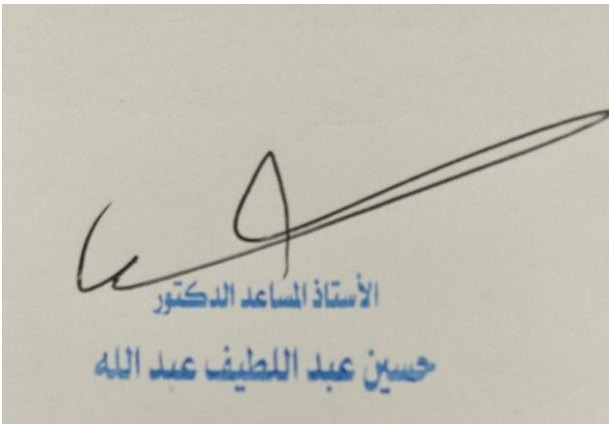 الأستاذ المساعد الدكتور
حسين عبد اللطيف عبد الله